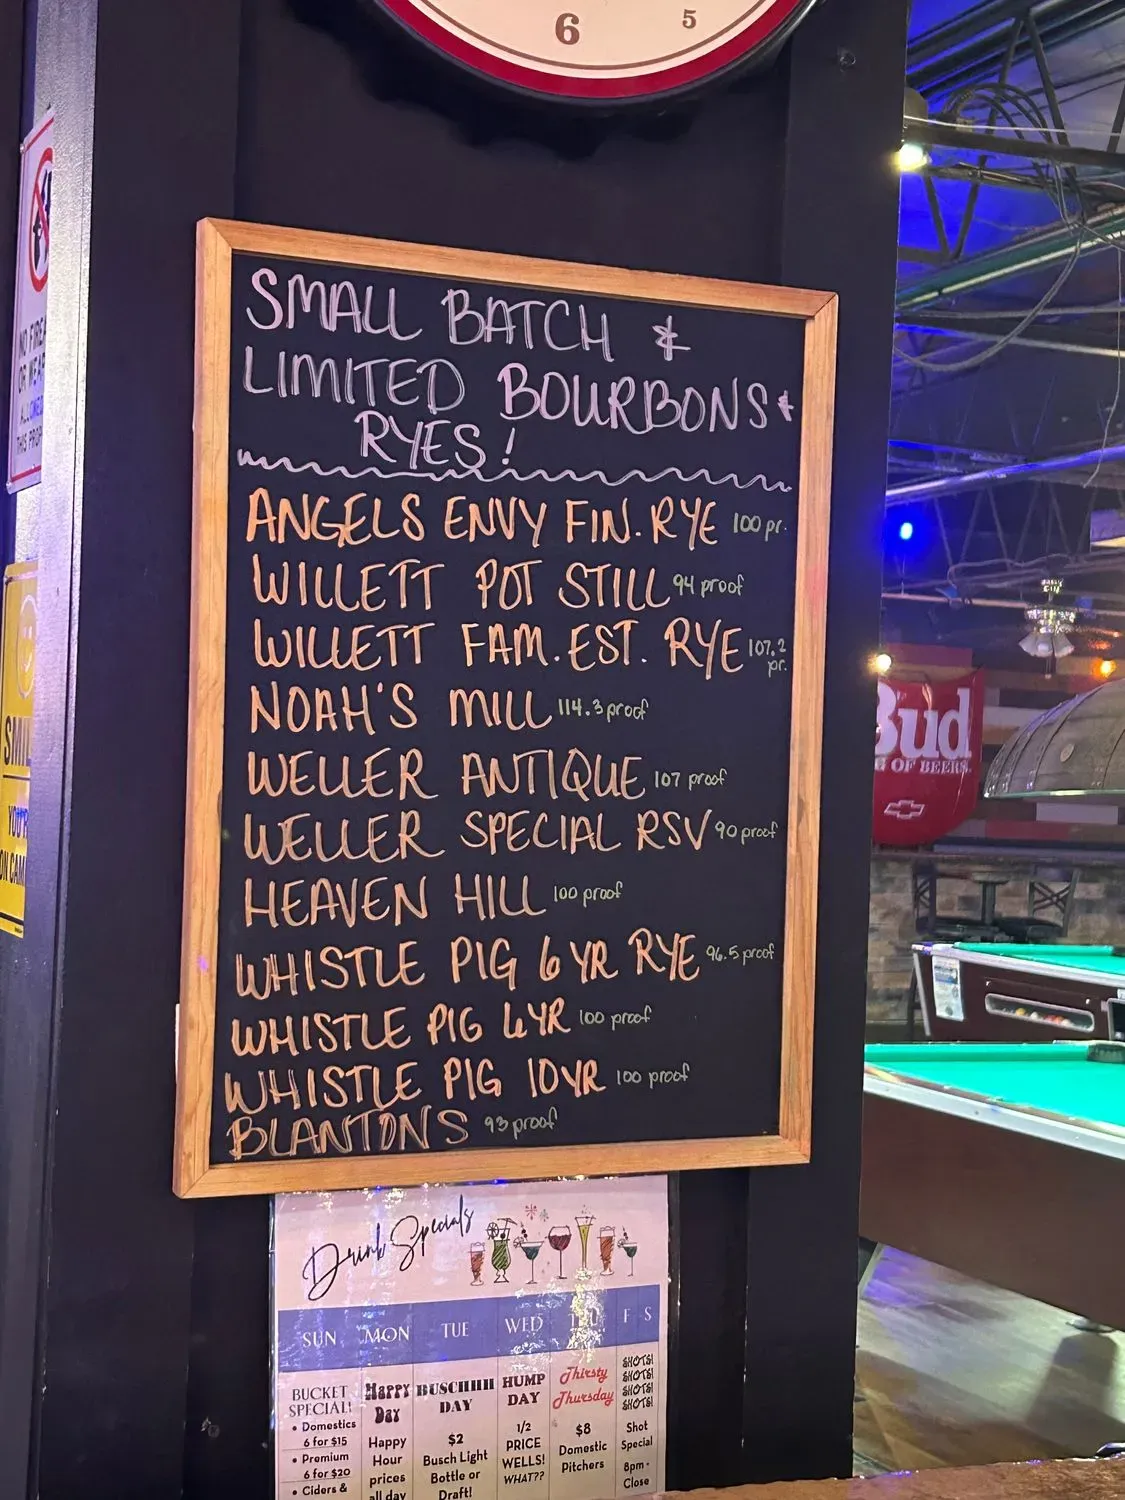 6 5
SMALL BATCH &
LIMITED BOURBONS &
RYES!
ANGELS ENVY FIN. RYE 100 pr.
WILLETT POT STILL 94 proof
WILLETT FAM. EST. RYE 107.2 pr.
NOAH'S MILL 114.3 proof
WELLER ANTIQUE 107 proof
WELLER SPECIAL RSV 90 proof
HEAVEN HILL 100 proof
WHISTLE PIG 6 YR RYE 96.5 proof
WHISTLE PIG 6YR 100 proof
WHISTLE PIG 10YR 100 proof
BLANTONS 93 proof
Drink Specials
SUN MON TUE WED THU F S
BUCKET
SPECIAL!
• Domestics
6 for $15
• Premium
6 for $20
• Ciders &
Happy
Day
Happy
Hour
prices
all day
BUSCHHH
DAY
$2
Busch Light
Bottle or
Draft!
HUMP
DAY
1/2
PRICE
WELLS!
WHAT??
Thirsty
Thursday
$8
Domestic
Pitchers
SHOTS!
SHOTS!
SHOTS!
SHOTS!
Shot
Special
8pm -
Close
Bud
OF BEERS.
NO FIRE
ALLOWED
THIS PROP
SMIL
YOU'R
ON CAM